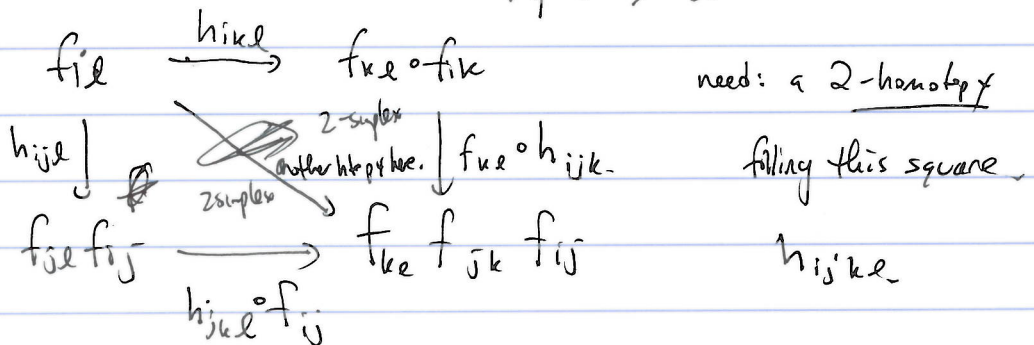 h_{ikl}
f_{il} → f_{kl} ∘ f_{ik}
need: a 2-homotopy
2-simplex
h_{ijl} another htopy here. f_{kl} ∘ h_{ijk}.
filling this square.
2simplex
f_{jl} f_{ij} → f_{kl} f_{jk} f_{ij}
h_{ijkl}.
h_{jkl} ∘ f_{ij}